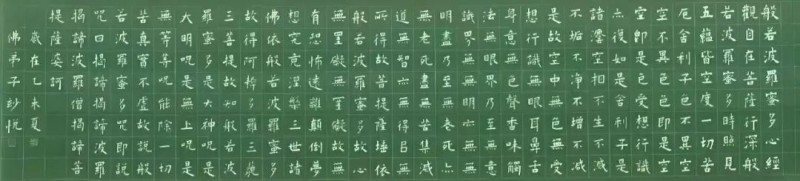 般若波羅蜜多心經
觀自在菩薩行深般
若波羅蜜多時照見
五蘊皆空度一切苦
厄舍利子色不異空
空不異色色即是空
空即是色受想行識
亦復如是舍利子是
諸法空相不生不滅
不垢不淨不增不減
是故空中無色無受
想行識無眼耳鼻舌
身意無色聲香味觸
法無眼界乃至無意
識界無無明亦無無
明盡乃至無老死亦
無老死盡無苦集滅
道無智亦無得以無
所得故菩提薩埵依
般若波羅蜜多故心
無罣礙無罣礙故無
有恐怖遠離顛倒夢
想究竟涅槃三世諸
佛依般若波羅蜜多
故得阿耨多羅三藐
三菩提故知般若波
羅蜜多是大神呪是
大明呪是無上呪是
無等等呪能除一切
苦真實不虛故說般
若波羅蜜多呪即說
呪曰揭諦揭諦波羅
揭諦波羅僧揭諦菩
提薩婆訶
歲在乙未夏
佛弟子妙悅